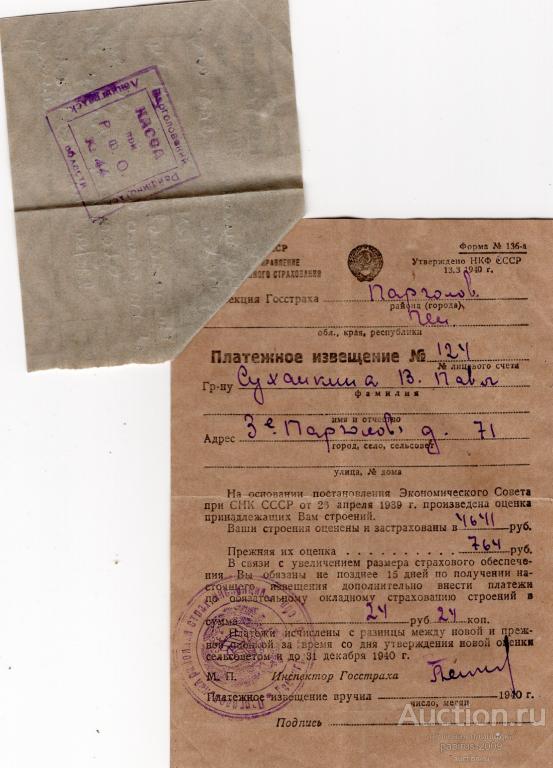 Парголовский
Ленинградск
КАССА
при
Р Ф О
№ 44
области
ССР
РАВЛЕНИЕ
НОГО СТРАХОВАНИЯ
Форма № 136-а
Утверждено НКФ СССР
13.3 1940 г.
екция Госстраха Парголов.
района (города),
обл., края, республики
Платежное извещение № 124
№ лицевого счета
Гр-ну Сухаикина В. Павл
фамилия
имя и отчество
Адрес 3е Парголов, д. 71
город, село, сельсовет
улица, № дома
На основании постановления Экономического Совета
при СНК СССР от 26 апреля 1939 г. произведена оценка
принадлежащих Вам строений.
Ваши строения оценены и застрахованы в 4641 руб.
Прежняя их оценка . . . . . . . . . . 764 руб.
В связи с увеличением размера страхового обеспече-
ния Вы обязаны не позднее 15 дней по получении на-
стоящего извещения дополнительно внести платежи
по обязательному окладному страхованию строений в
сумма 24 руб 24 коп.
Платежи исчислены с разницы между новой и преж-
ней оценкой за время со дня утверждения новой оценки
сельсоветом и до 31 декабря 1940 г.
М. П. Инспектор Госстраха
Платежное извещение вручил 1940 г.
число, месяц
Подпись
Auction.ru
papirus-2009
auction.ru